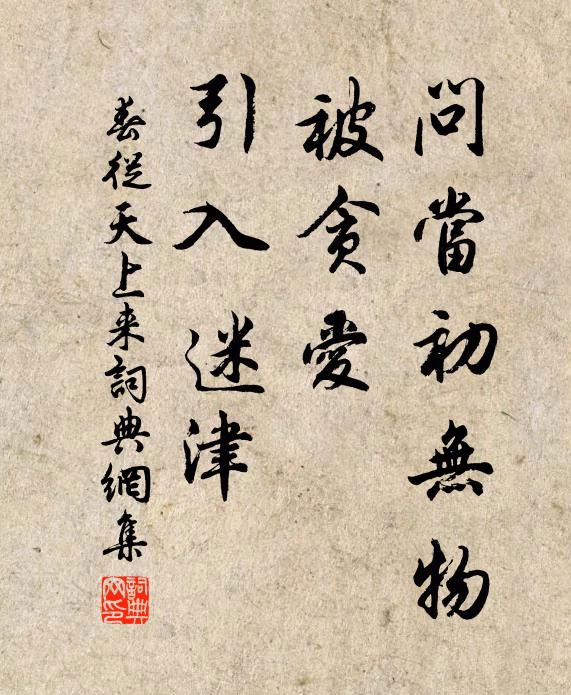 問當初無物
被貪愛
引入迷津
春從天上来詞典網集
詞典网印